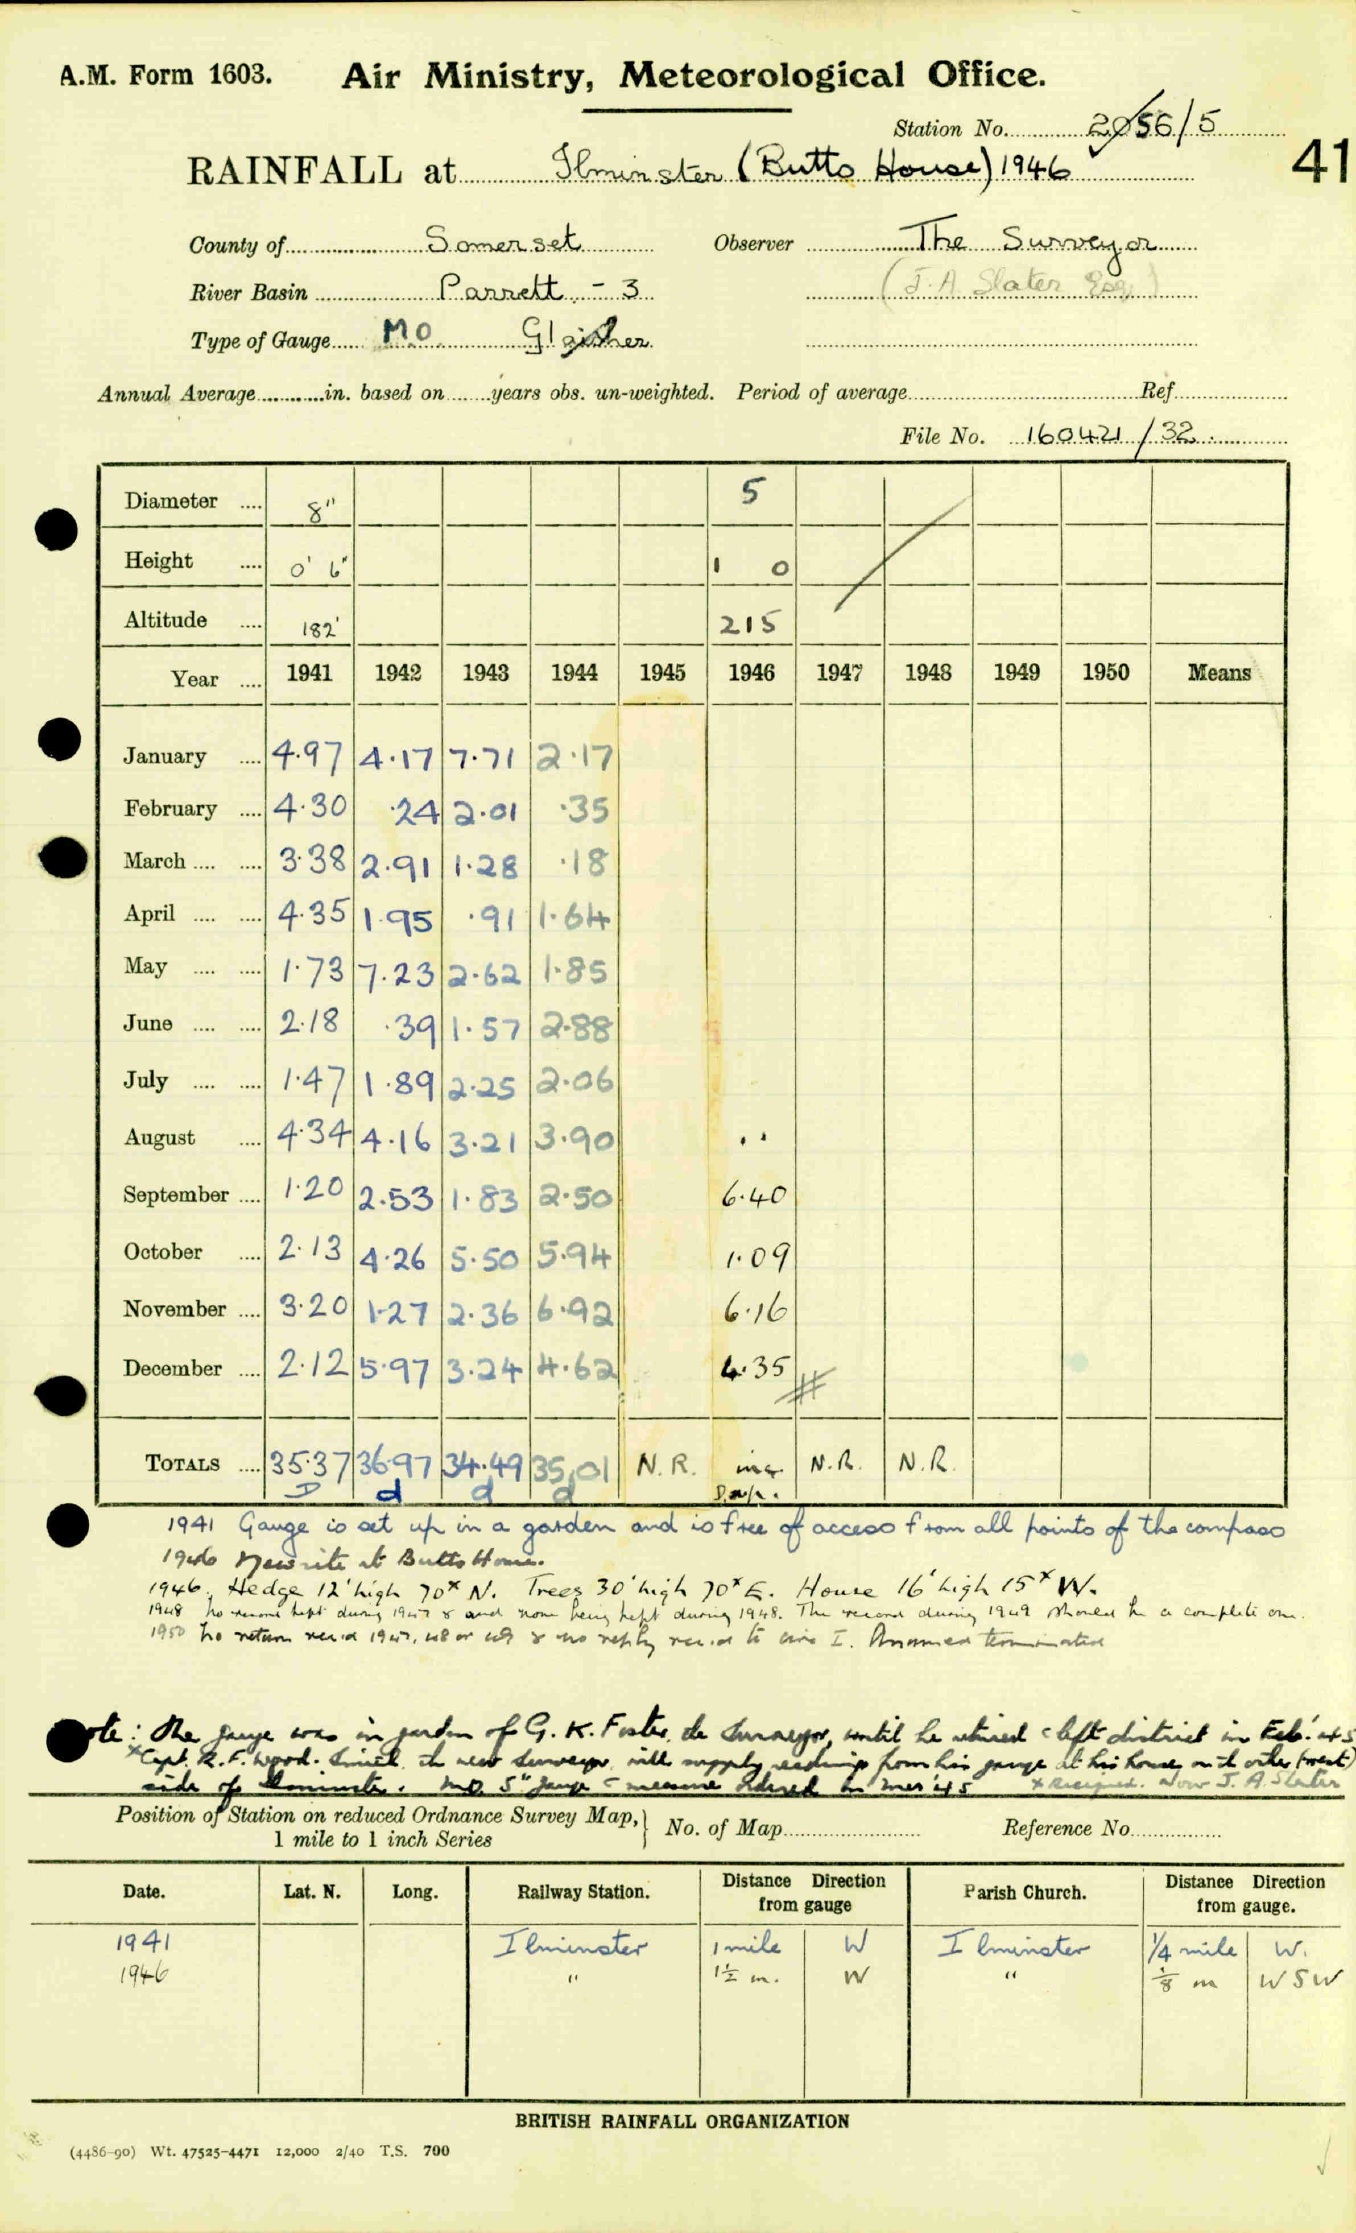 A.M. Form 1603. Air Ministry, Meteorological Office.
Station No. 2056/5
RAINFALL at Ilminster (Butts House) 1946
41
County of Somerset Observer The Surveyor
River Basin Parrett - 3 (J. A. Slater Esq)
Type of Gauge M.O. Glaisher
Annual Average in. based on years obs. un-weighted. Period of average Ref
File No. 160421/32.
Diameter 8" 5
Height 0' 6" 1 0
Altitude 182' 215
Year 1941 1942 1943 1944 1945 1946 1947 1948 1949 1950 Means
January 4.97 4.17 7.71 2.17
February 4.30 .24 2.01 .35
March 3.38 2.91 1.28 .18
April 4.35 1.95 .91 1.64
May 1.73 7.23 2.62 1.85
June 2.18 .39 1.57 2.88
July 1.47 1.89 2.25 2.06
August 4.34 4.16 3.21 3.90 ..
September 1.20 2.53 1.83 2.50 6.40
October 2.13 4.26 5.50 5.94 1.09
November 3.20 1.27 2.36 6.92 6.16
December 2.12 5.97 3.24 4.62 4.35
TOTALS 35.37 36.97 34.49 35.01 N.R. inc. N.R. N.R.
D d d d
1941 Gauge is set up in a garden and is free of access from all points of the compass
1946 New site at Butts House.
1946. Hedge 12' high 70x N. Trees 30' high 70x E. House 16' high 15x W.
1948 No record kept during 1947 & and none being kept during 1948. The record during 1949 should be a complete one.
1950 No return rec'd 1947, 48 or 49 & no reply rec'd to I. terminated
Note: The gauge was in garden of G. K. Foster, the Surveyor, until he retired & left district in Feb. '45
x Capt. R. F. Wood. the new Surveyor will supply readings from his gauge at his house on the other (west)
side of Ilminster. M.O. 5" gauge measure ordered in Mar '45 x Resigned. Now J. A. Slater
Position of Station on reduced Ordnance Survey Map, 1 mile to 1 inch Series No. of Map Reference No.
Date. Lat. N. Long. Railway Station. Distance Direction from gauge Parish Church. Distance Direction from gauge.
1941 Ilminster 1 mile W Ilminster 1/4 mile W.
1946 " 1½ m. W " 1/8 m WSW
BRITISH RAINFALL ORGANIZATION
(4486-90) Wt. 47525-4471 12,000 2/40 T.S. 700